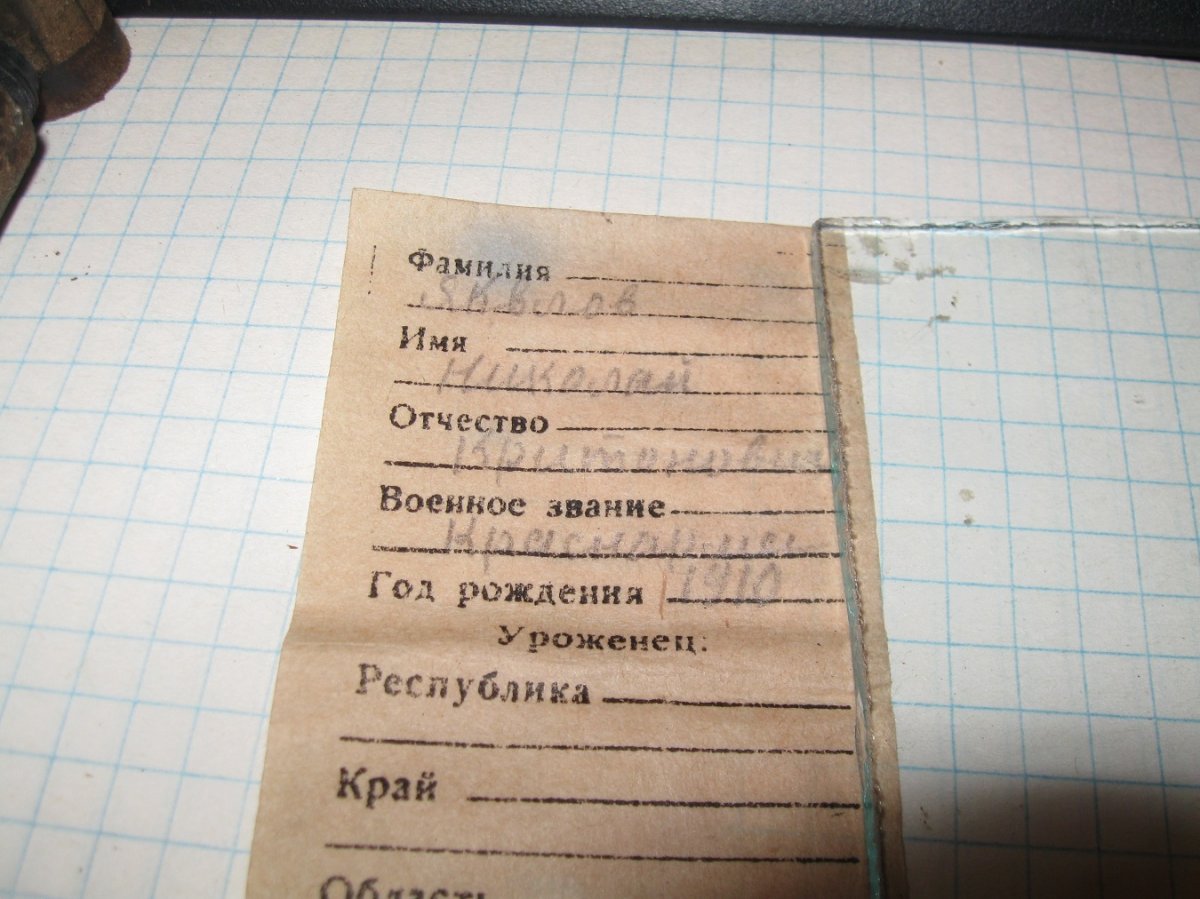 Фамилия
Имя
Николай
Отчество
Военное звание
Красноармеец
Год рождения 1910
Уроженец:
Республика
Край
Область